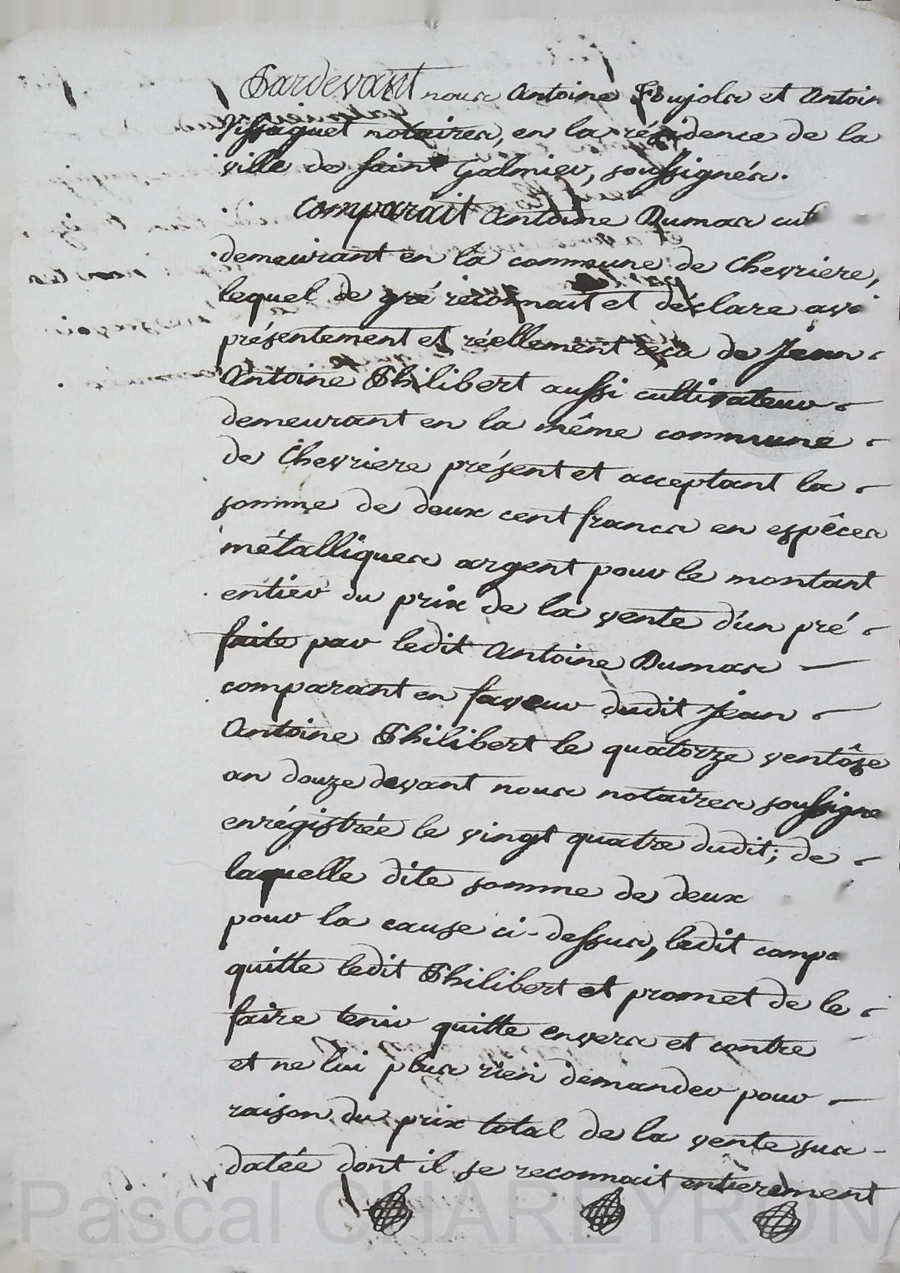 Pardevant nous Antoine Pujols et Antoin
Vissaguet notaires, en la résidence de la
ville de saint Galmier, soussignés.
Comparait Antoine Dumas cult
demeurant en la commune de Chevriere,
lequel de gré reconnait et déclare avo
présentement et réellement reçu de Jean
Antoine Philibert aussi cultivateur
demeurant en la même commune
de Chevriere présent et acceptant la
somme de deux cent francs en espêces
métalliques argent pour le montant
entier du prix de la vente d'un pré
faite par ledit Antoine Dumas
comparant en faveur dudit Jean
Antoine Philibert le quatorze ventôse
an douze devant nous notaires soussigne
enrégistrée le vingt quatre dudit; de
laquelle dite somme de deux
pour la cause ci-dessus, ledit compa
quitte ledit Philibert et promet de le
faire tenir quitte envers et contre
et ne lui plus rien demander pour
raison du prix total de la vente sus-
datée dont il se reconnait entierement
Pascal CHARLEYRON